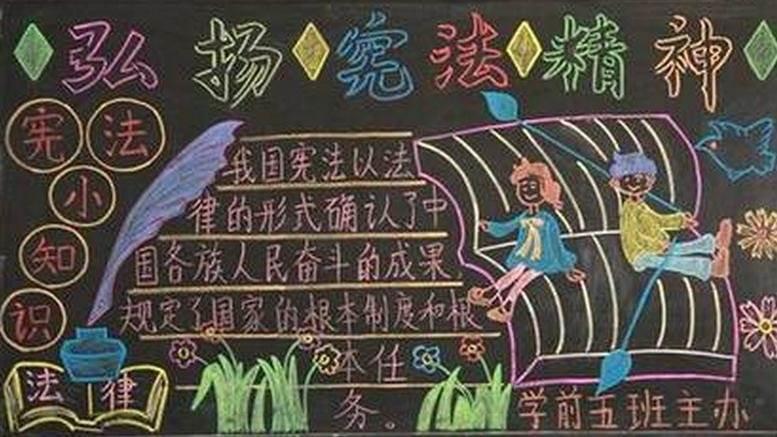 弘扬宪法精神
宪法
小
知
识
我国宪法以法
律的形式确认了中
国各族人民奋斗的成果,
规定了国家的根本制度和根
本任
务。
法律
学前五班主办